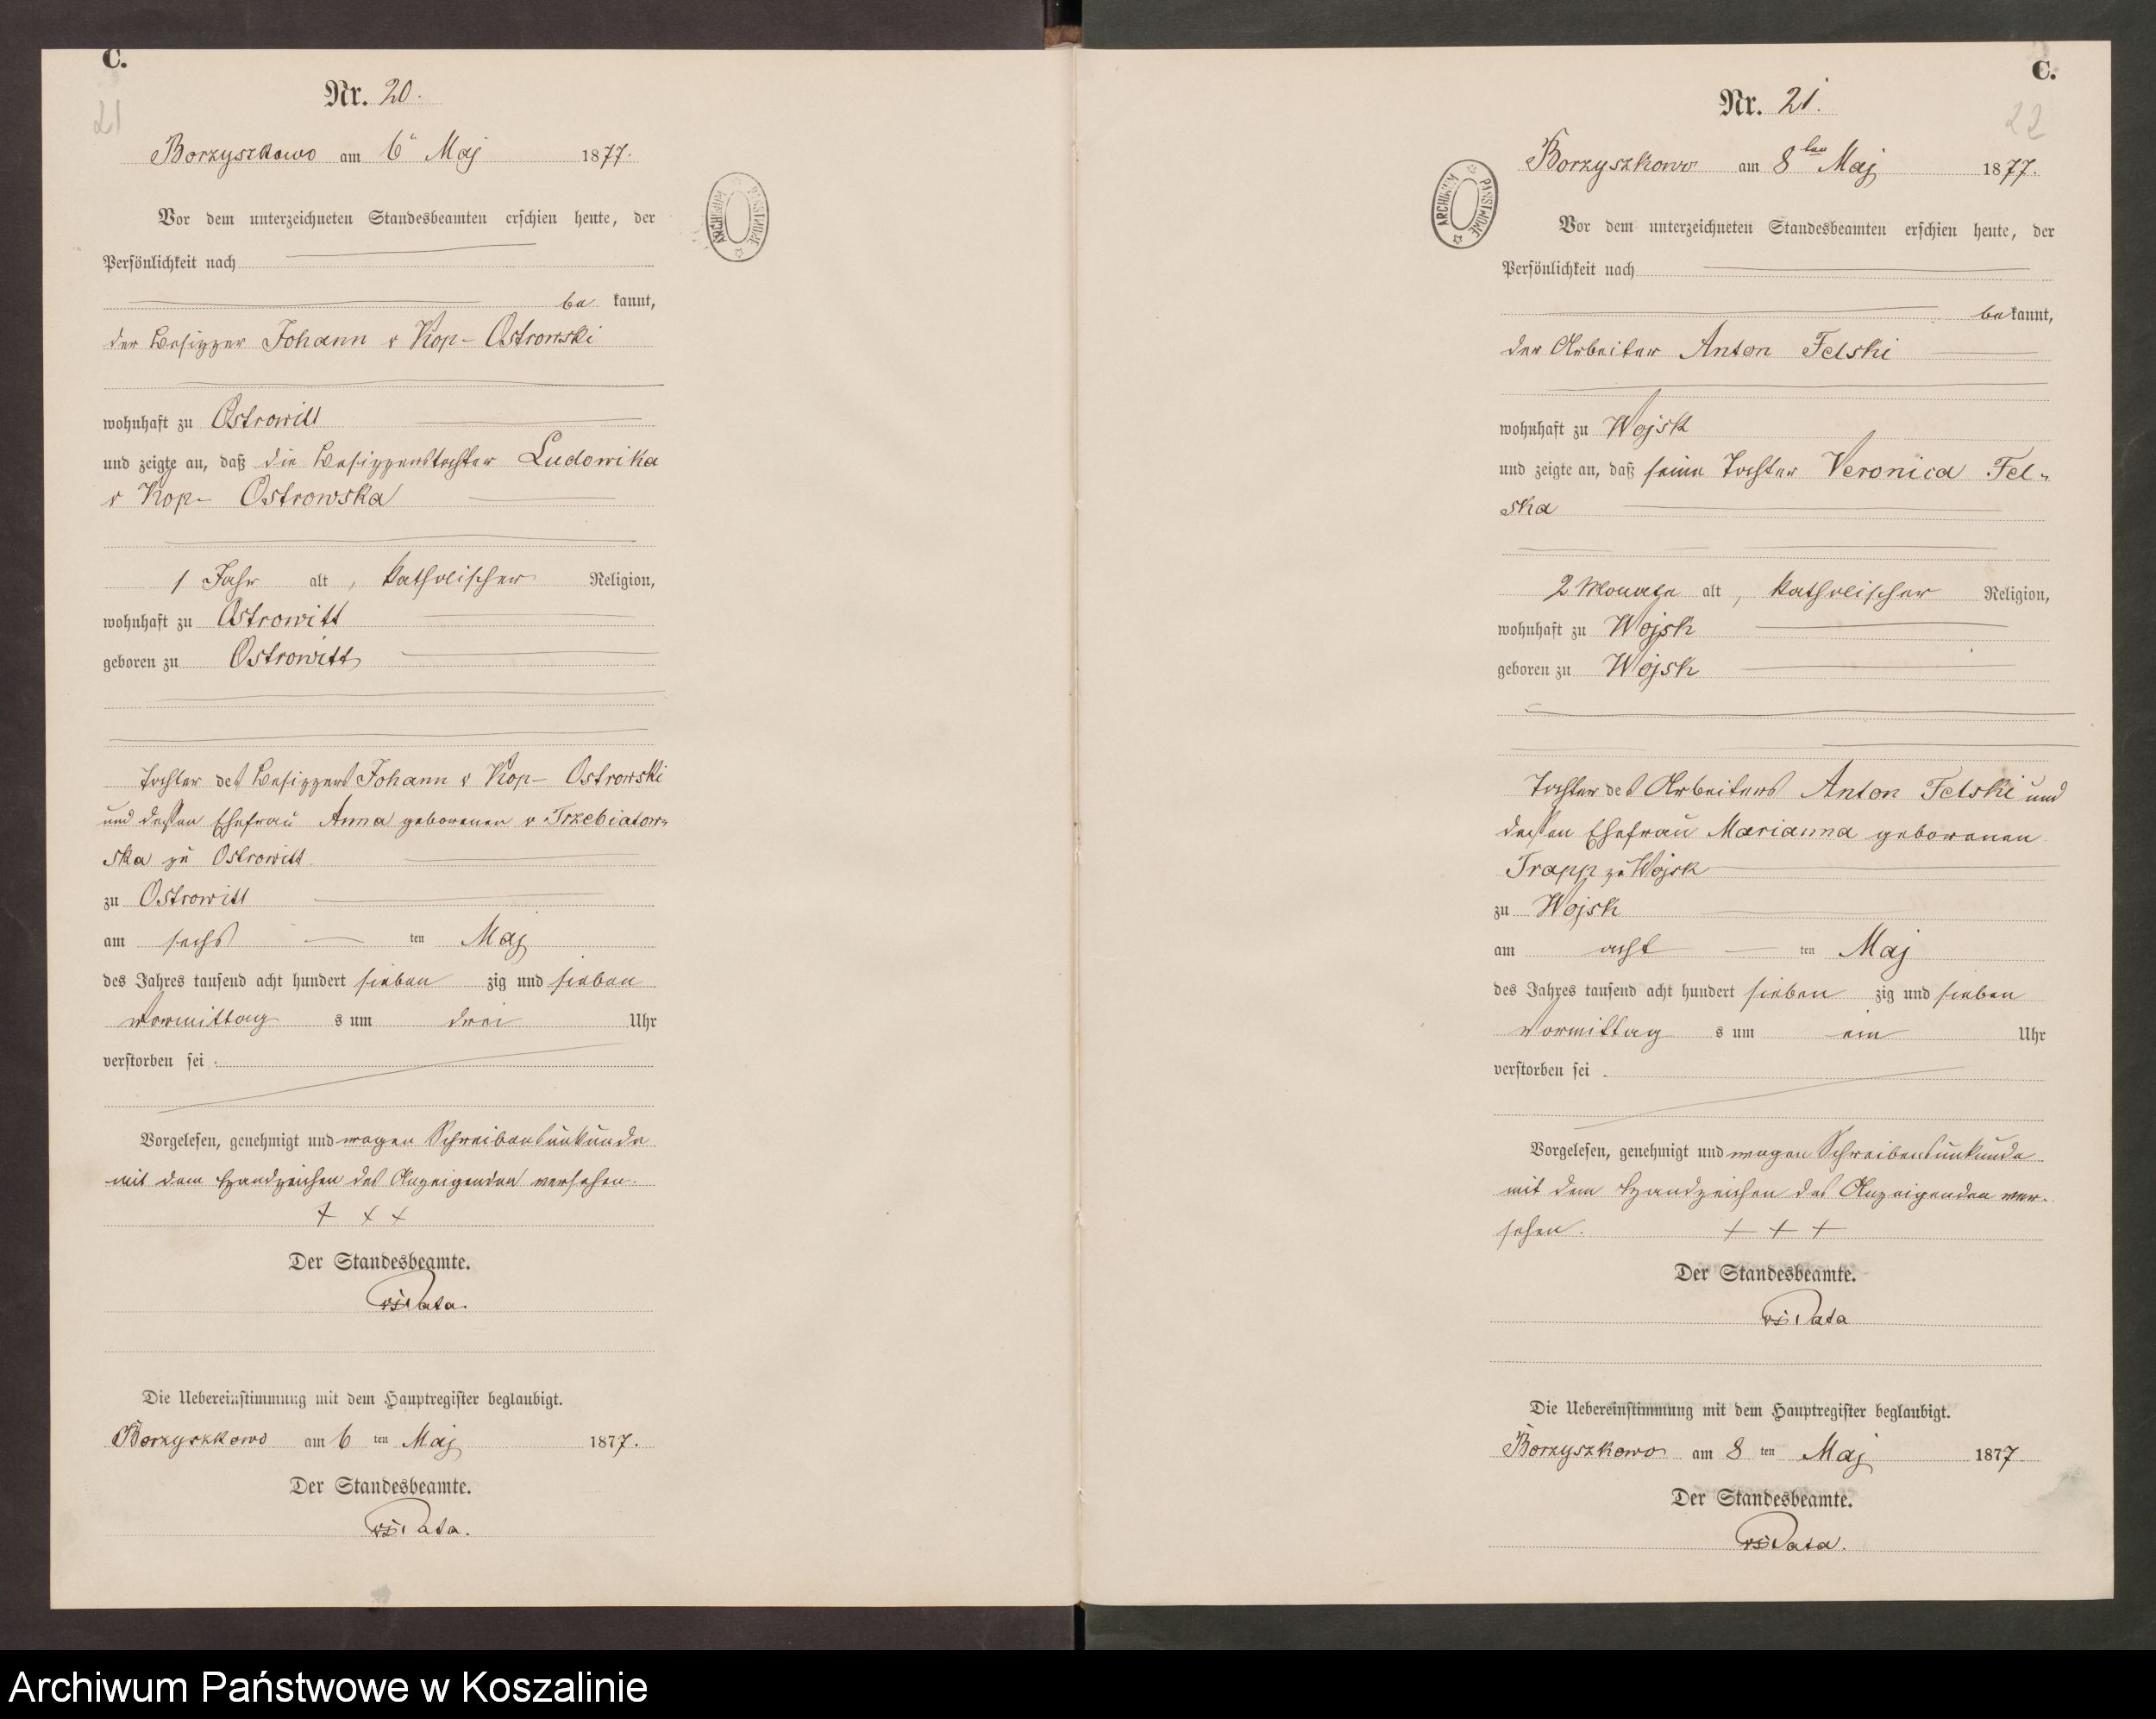 C.
21
Nr. 20.
Borzyszkowo am 6 Maj 1877.
Vor dem unterzeichneten Standesbeamten erschien heute, der
Persönlichkeit nach
be kannt,
der Besizzer Johann v Kop- Ostrowski
wohnhaft zu Ostrowitt
und zeigte an, daß die Besizzerstochter Ludowika
v Kop- Ostrowska
1 Jahr alt, katholischer Religion,
wohnhaft zu Ostrowitt
geboren zu Ostrowitt
Tochter des Besizzers Johann v Kop- Ostrowski
und dessen Ehefrau Anna geborenen v Trzebiatow-
ska zu Ostrowitt.
zu Ostrowitt
am sechs ten Maj
des Jahres tausend acht hundert sieben zig und sieben
Vormittag s um drei Uhr
verstorben sei.
Vorgelesen, genehmigt und wegen Schreibensunkunde
mit dem Handzeichen des Anzeigenden versehen.
+ + +
Der Standesbeamte.
Pata.
Die Uebereinstimmung mit dem Hauptregister beglaubigt.
Borzyszkowo am 6 ten Maj 1877.
Der Standesbeamte.
Pata.
C.
22
Nr. 21.
Borzyszkowo am 8 ten Maj 1877.
ARCHIWUM PAŃSTWOWE
Vor dem unterzeichneten Standesbeamten erschien heute, der
Persönlichkeit nach
be kannt,
der Arbeiter Anton Felski
wohnhaft zu Wojsk
und zeigte an, daß seine Tochter Veronica Fel-
ska
2 Monate alt, katholischer Religion,
wohnhaft zu Wojsk
geboren zu Wojsk
Tochter des Arbeiters Anton Felski und
dessen Ehefrau Marianna geborenen
Trapp zu Wojsk
zu Wojsk
am acht ten Maj
des Jahres tausend acht hundert sieben zig und sieben
Vormittag s um ein Uhr
verstorben sei.
Vorgelesen, genehmigt und wegen Schreibensunkunde
mit dem Handzeichen des Anzeigenden ver-
sehen. + + +
Der Standesbeamte.
Pata
Die Uebereinstimmung mit dem Hauptregister beglaubigt.
Borzyszkowo am 8 ten Maj 1877.
Der Standesbeamte.
Pata.
ARCHIWUM PAŃSTWOWE
Archiwum Państwowe w Koszalinie